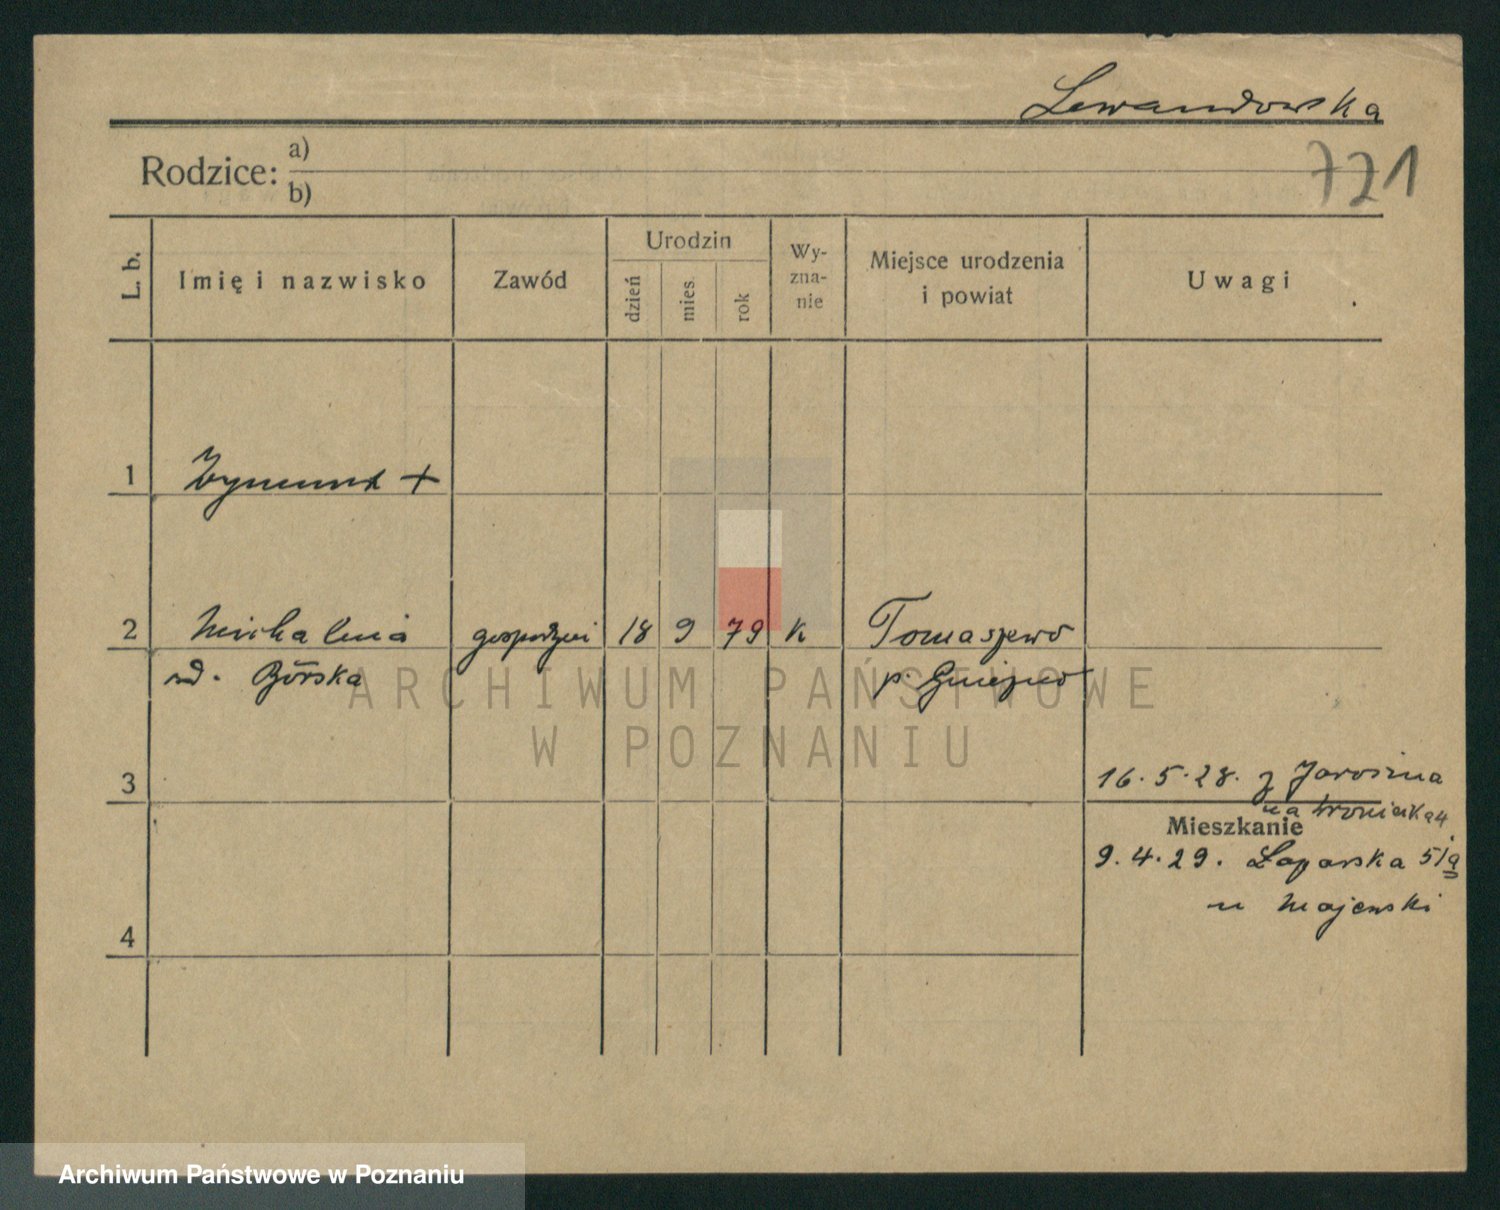 Lewandowska
721
Rodzice: a)
b)
L. b.
Imię i nazwisko
Zawód
Urodzin
dzień
mies.
rok
Wy-
zna-
nie
Miejsce urodzenia
i powiat
Uwagi
1 Zygmunt +
2 Michalina gospodyni 18 9 79 k Tomaszewo
ud. Górska p. Gniezno
ARCHIWUM PAŃSTWOWE
W POZNANIU
3 16.5.28. z Jarocina
na Wroniecka 4
Mieszkanie
9.4.29. Łazarska 5/a
u Majewski
4
Archiwum Państwowe w Poznaniu